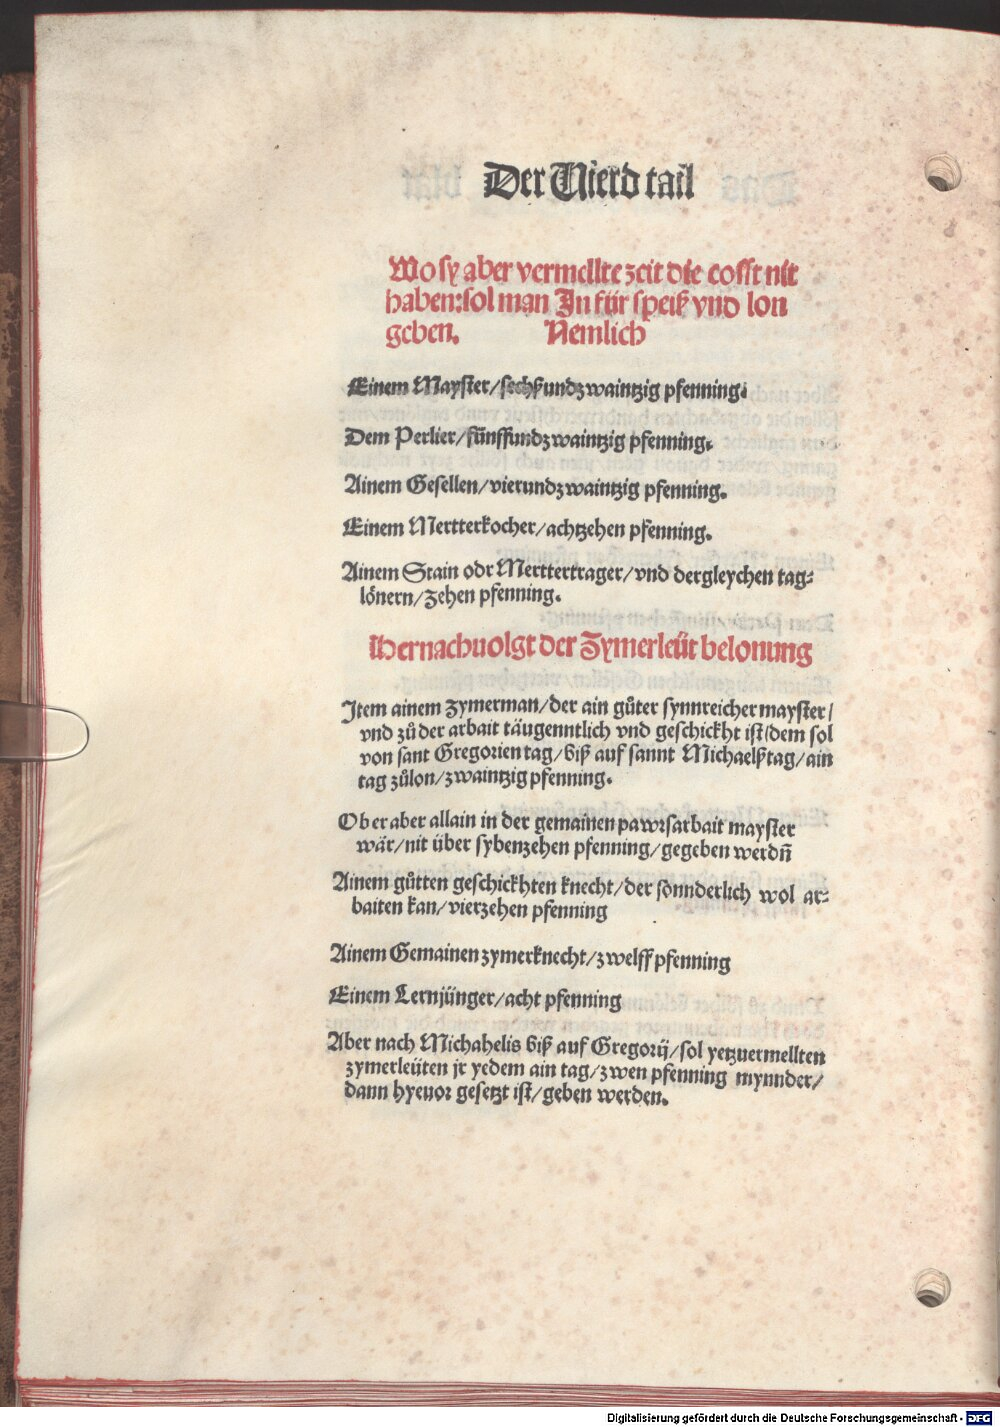 Der Vierd tail
Wo sy aber vermellte zeit die cosst nit
haben: sol man In für speiß vnd lon
geben. Nemlich
Einem Mayster/sechßundzwaintzig pfenning.
Dem Perlier/fünffundzwaintzig pfenning.
Ainem Gesellen/vierundzwaintzig pfenning.
Einem Mertterkocher/achtzehen pfenning.
Ainem Stain odr Merttertrager/vnd dergleychen tag-
lönern/zehen pfenning.
Hernachuolgt der Zymerleüt belonung
Item ainem zymerman/der ain gůter synnreicher mayster/
vnd zů der arbait täugenntlich vnd geschickht ist/dem sol
von sant Gregorien tag/biß auf sannt Michaelß tag/ain
tag zůlon/zwaintzig pfenning.
Ob er aber allain in der gemainen pawrsarbait mayster
wär/nit über sybenzehen pfenning/gegeben werdn̄
Ainem gůtten geschickhten knecht/der sonnderlich wol ar-
baiten kan/vierzehen pfenning
Ainem Gemainen zymerknecht/zwelff pfenning
Einem Lernjünger/acht pfenning
Aber nach Michahelis biß auf Gregorij/sol yetzuermellten
zymerleüten jr yedem ain tag/zwen pfenning mynnder/
dann hyeuor gesetzt ist/geben werden.
Digitalisierung gefördert durch die Deutsche Forschungsgemeinschaft - DFG